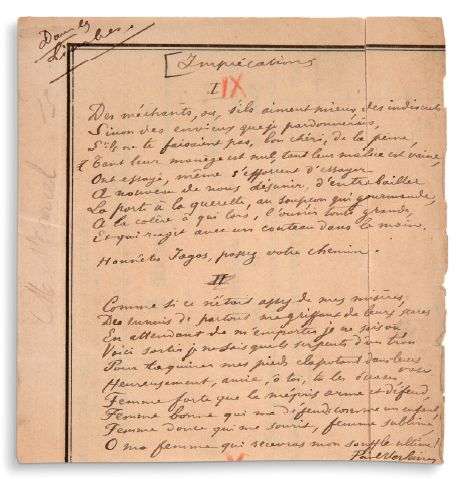 Dans les
Limbes.
Imprécations
I IX
Des méchants, ou, s'ils aiment mieux, des indiscrets
Sinon des envieux que je pardonnerais,
S'ils ne te faisaient pas, lou chéri, de la peine,
Tant leur manège est nul, tant leur malice est vaine,
Ont essayé, même s'efforcent d'essayer
A nouveau de nous désunir, d'entrebailler
La porte à la querelle, au soupçon qui gourmande,
A la colère à qui lors, l'ouvrir toute grande,
Et qui rugit avec un couteau dans la main.
Honnêtes Iagos, passez votre chemin.
II
Comme si ce n'était assez de mes misères,
Des ennuis de partout me griffant de leurs serres
En attendant de m'emporter je ne sais où,
Voici sortis je ne sais quels serpents d'un trou
Pour taquiner mes pieds clapotant dans leurs
vase
Heureusement, amie, à toi, tu les
Femme forte que le mépris arme et défend,
Femme bonne qui me défend comme un enfant,
Femme douce qui me sourit, femme sublime,
O ma femme qui recevras mon souffle ultime!
Paul Verlaine